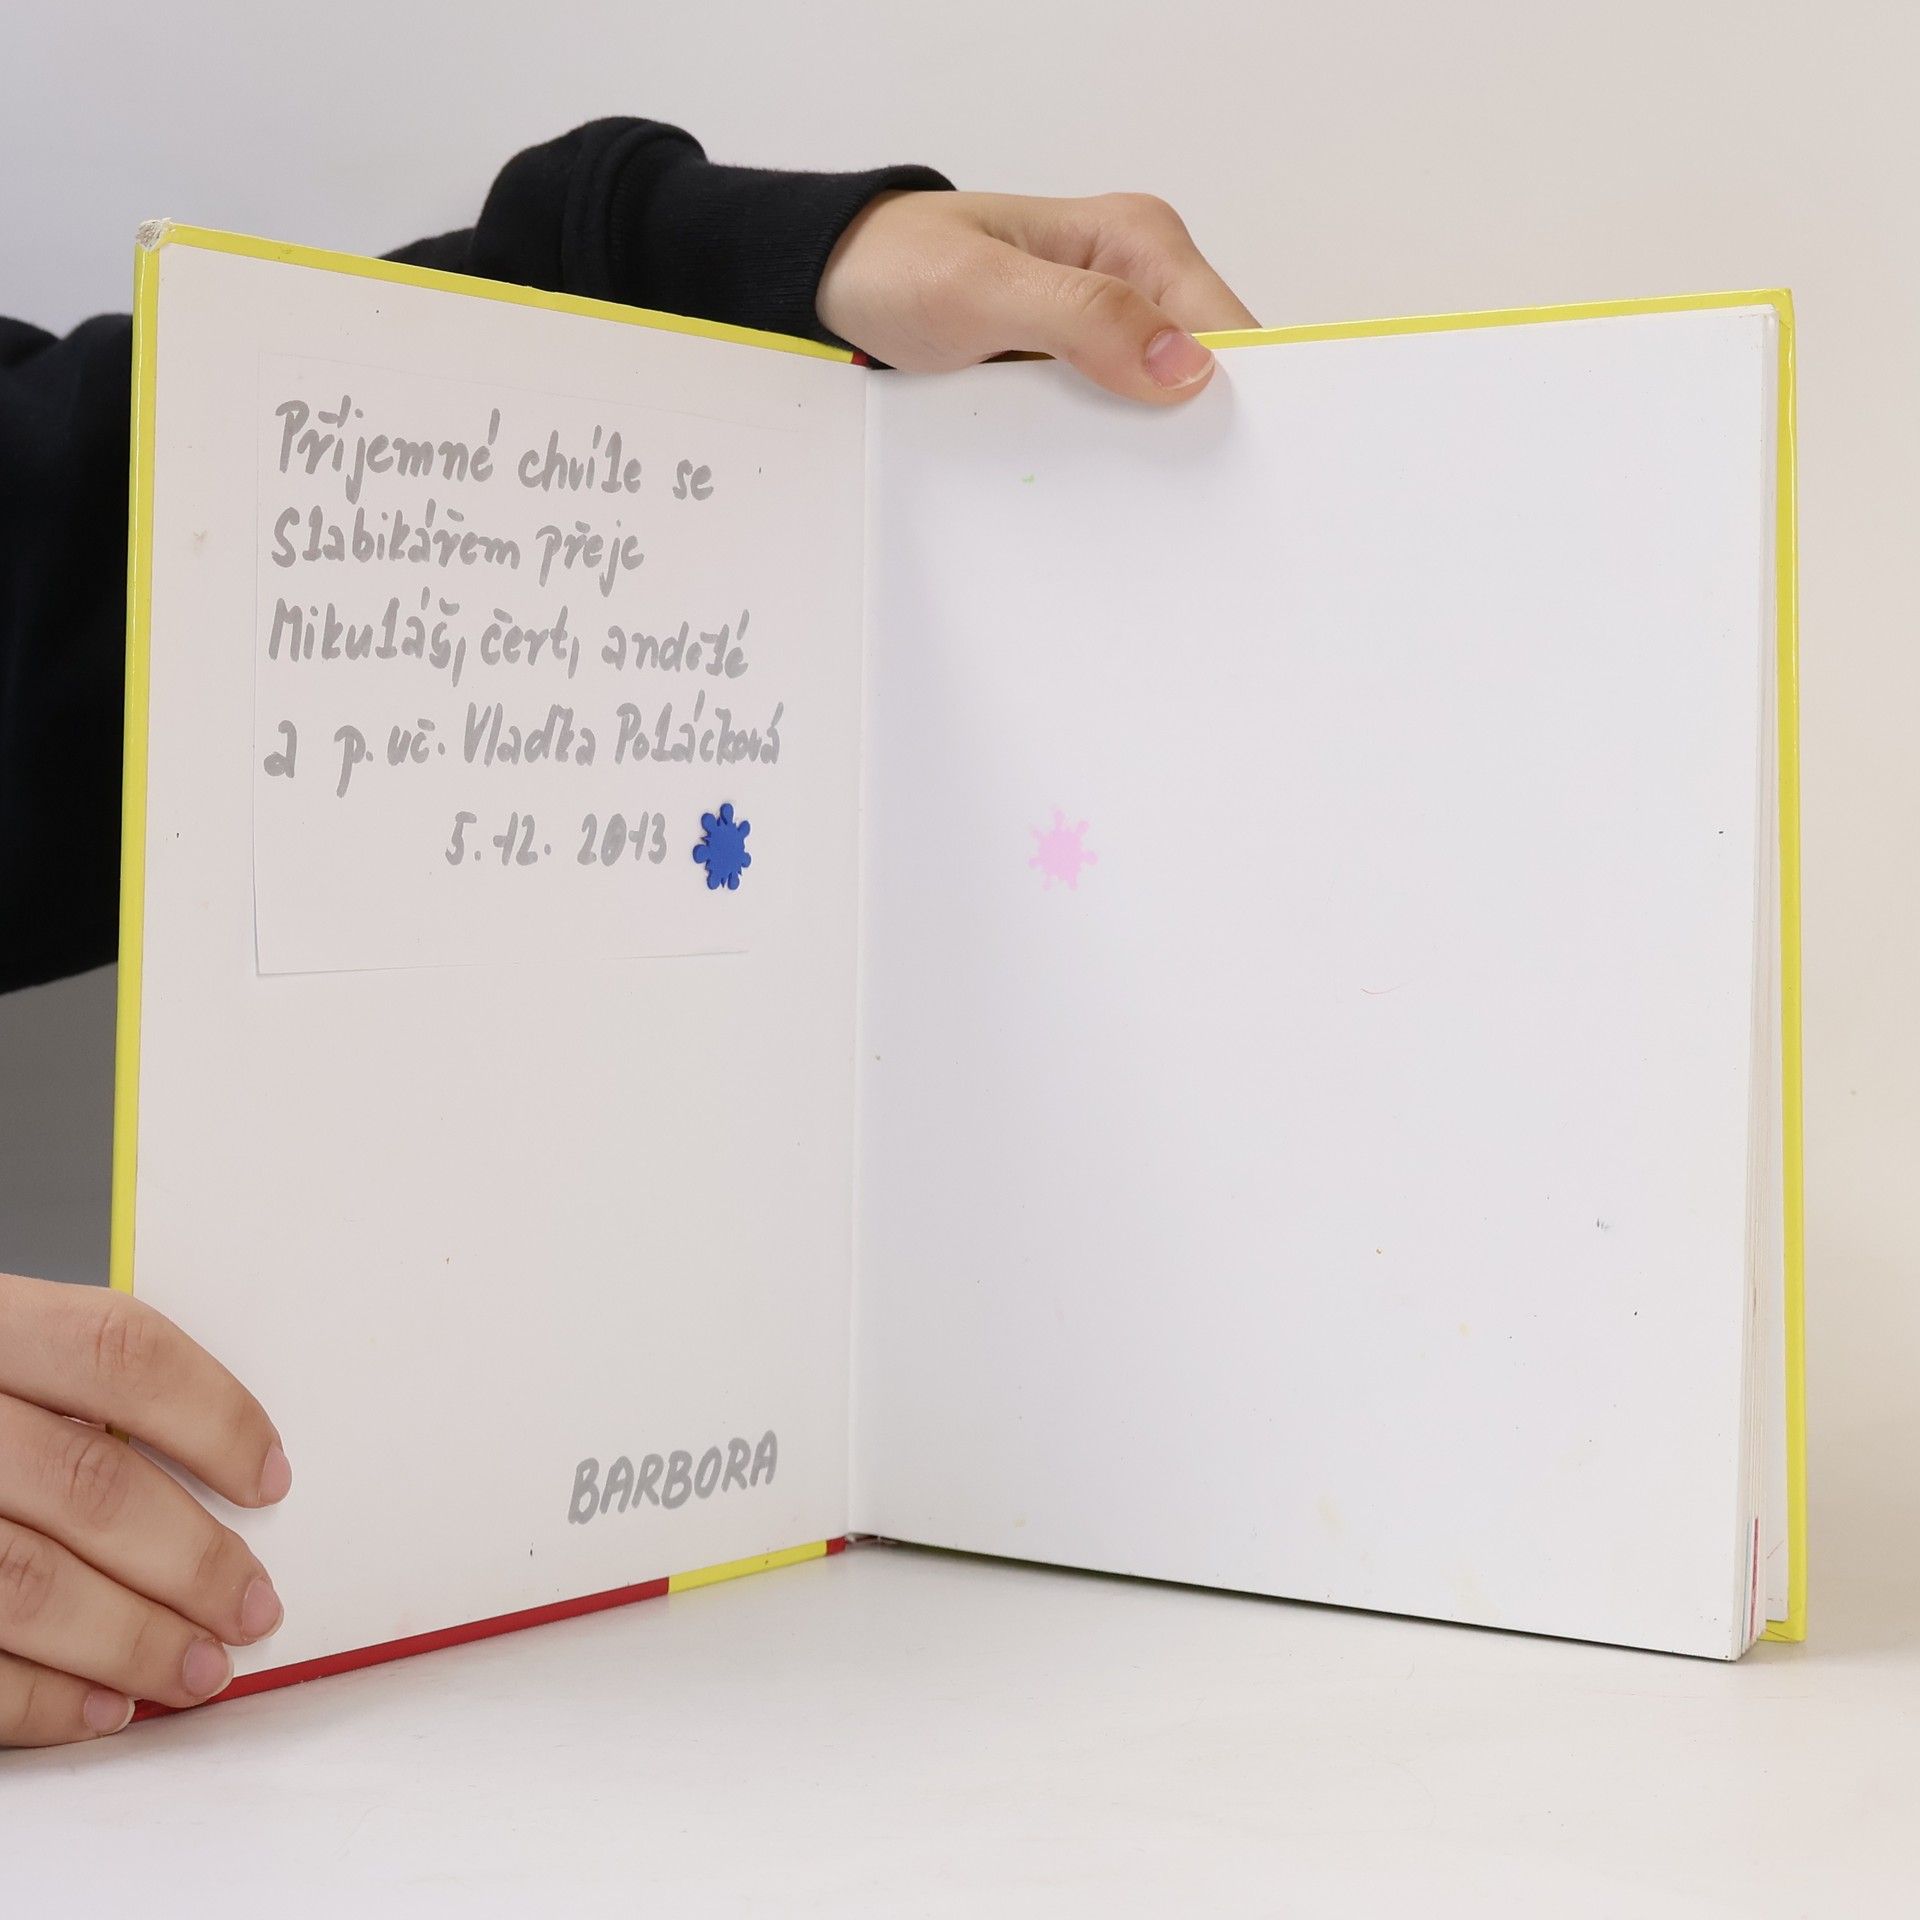 Příjemné chvíle se
Slabikářem přeje
Mikuláš, čert, andělé
a p. uč. Vlaďka Poláčková
5. 12. 2013
BARBORA